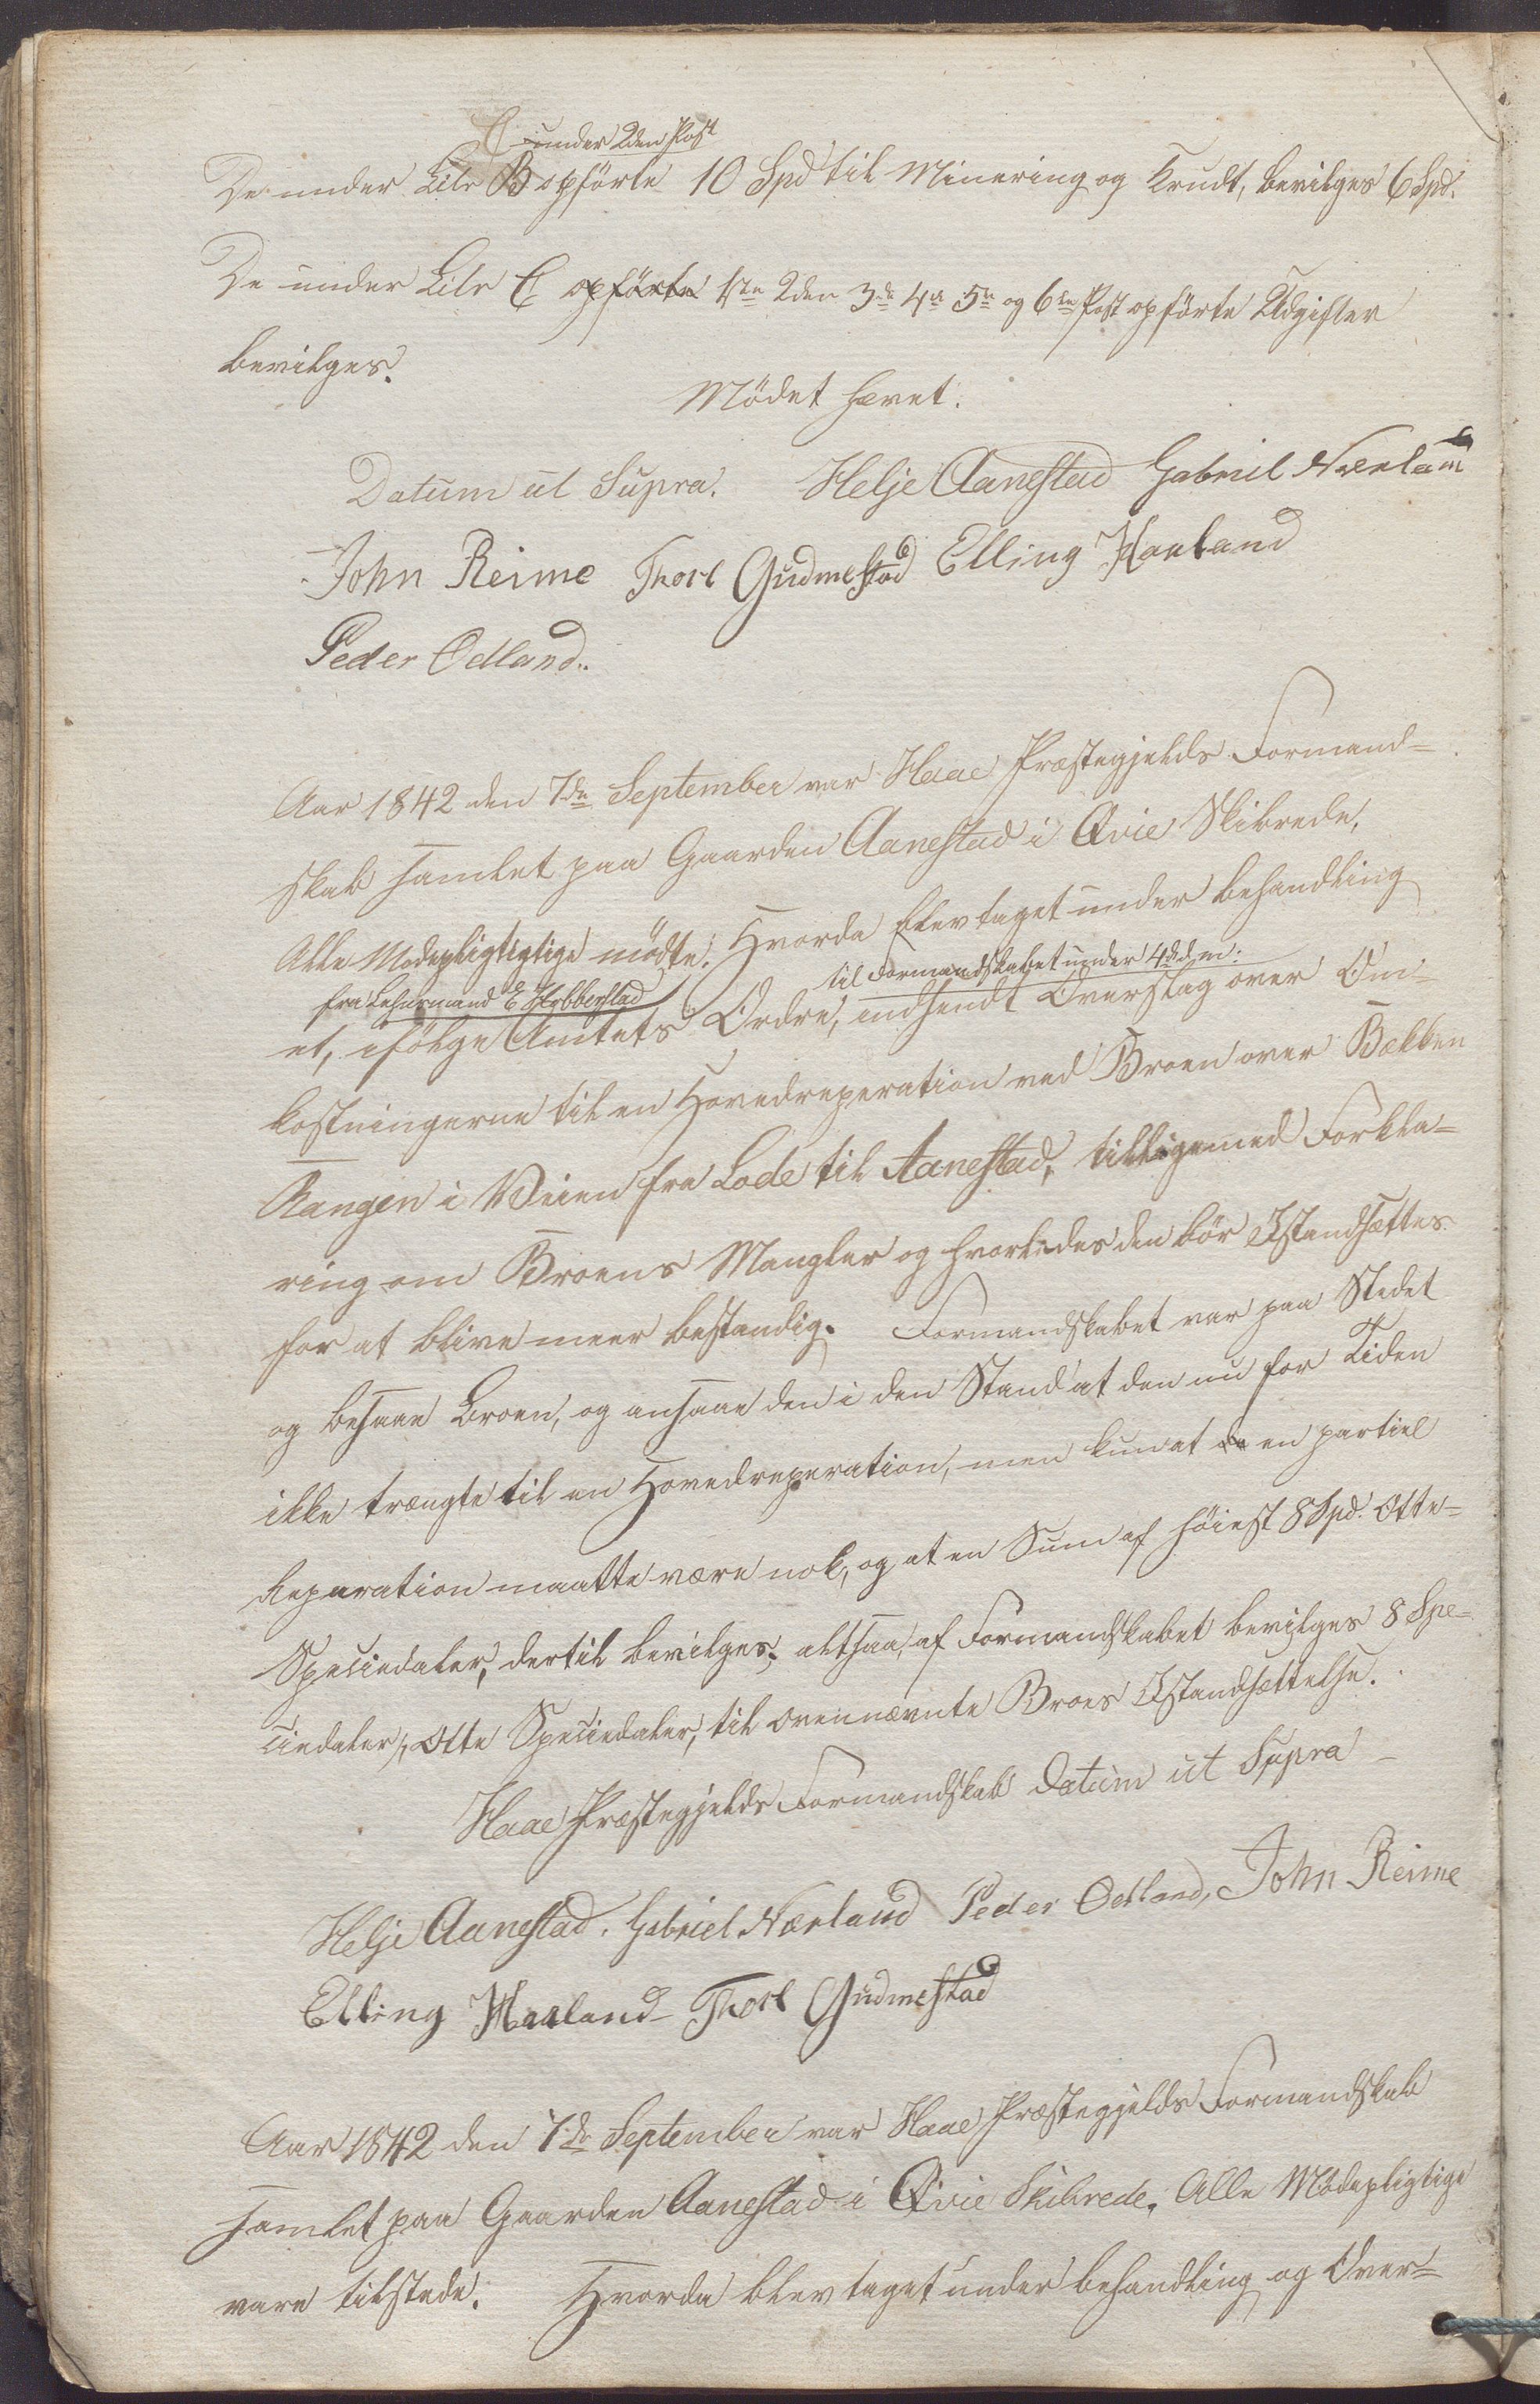 C under 2den Post
De under Litr B opförte 10 Spd til Minering og Krudt, bevilges 6 Spd.
De under Litr C opförte 1ste 2den 3de 4de 5te og 6te Post opförte Udgifter
bevilges.
Mödet hævet.
Datum ut Supra. Helje Aanestad Gabriel Nærland
John Reime Thore Gudmestad Elling Haaland
Peder Ødland.
Aar 1842 den 7de September var Haae Præstegjelds Formand-
skab samlet paa Gaarden Aanestad i Qvie Skibrede,
Alle Mødepligtigtige mödte. Hvorda blev taget under behandling
fra Lehnsmand E Skobberstad til Formandskabet under 4de d. m:
et, ifölge Amtets Ordre, indsendt Overslag over Om-
kostningerne til en Hovedreperation ved Broen over Bækken
Rangen i Veien fra Lode til Aanestad, tilligemed Forkla-
ring om Broens Mangler og hvorledes den bör Istandsættes
for at blive meer bestandig. Formandskabet var paa Stedet
og besaae Broen, og ansaae den i den Stand at den nu for Tiden
ikke trængte til en Hovedreperation, men kun at en partiel
Reparation maatte være nok, og at en Sum af höiest 8 Spd. Otte-
Speciedaler, dertil bevilges; altsaa, af Formandskabet bevilges 8 Spe-
ciedaler, Otte Speciedaler, til ovennævnte Broes Istandsættelse.
Haae Præstegjelds Formandskab Datum ut Supra
Helje Aanestad. Gabriel Nærland Peder Ødland, John Reime
Elling Haaland Thore Gudmestad
Aar 1842 den 7de September var Haae Præstegjelds Formandskab
samlet paa Gaarden Aanestad i Qvie Skibrede, Alle Mødepligtige
vare tilstede. Hvorda blev taget under behandling og Over-